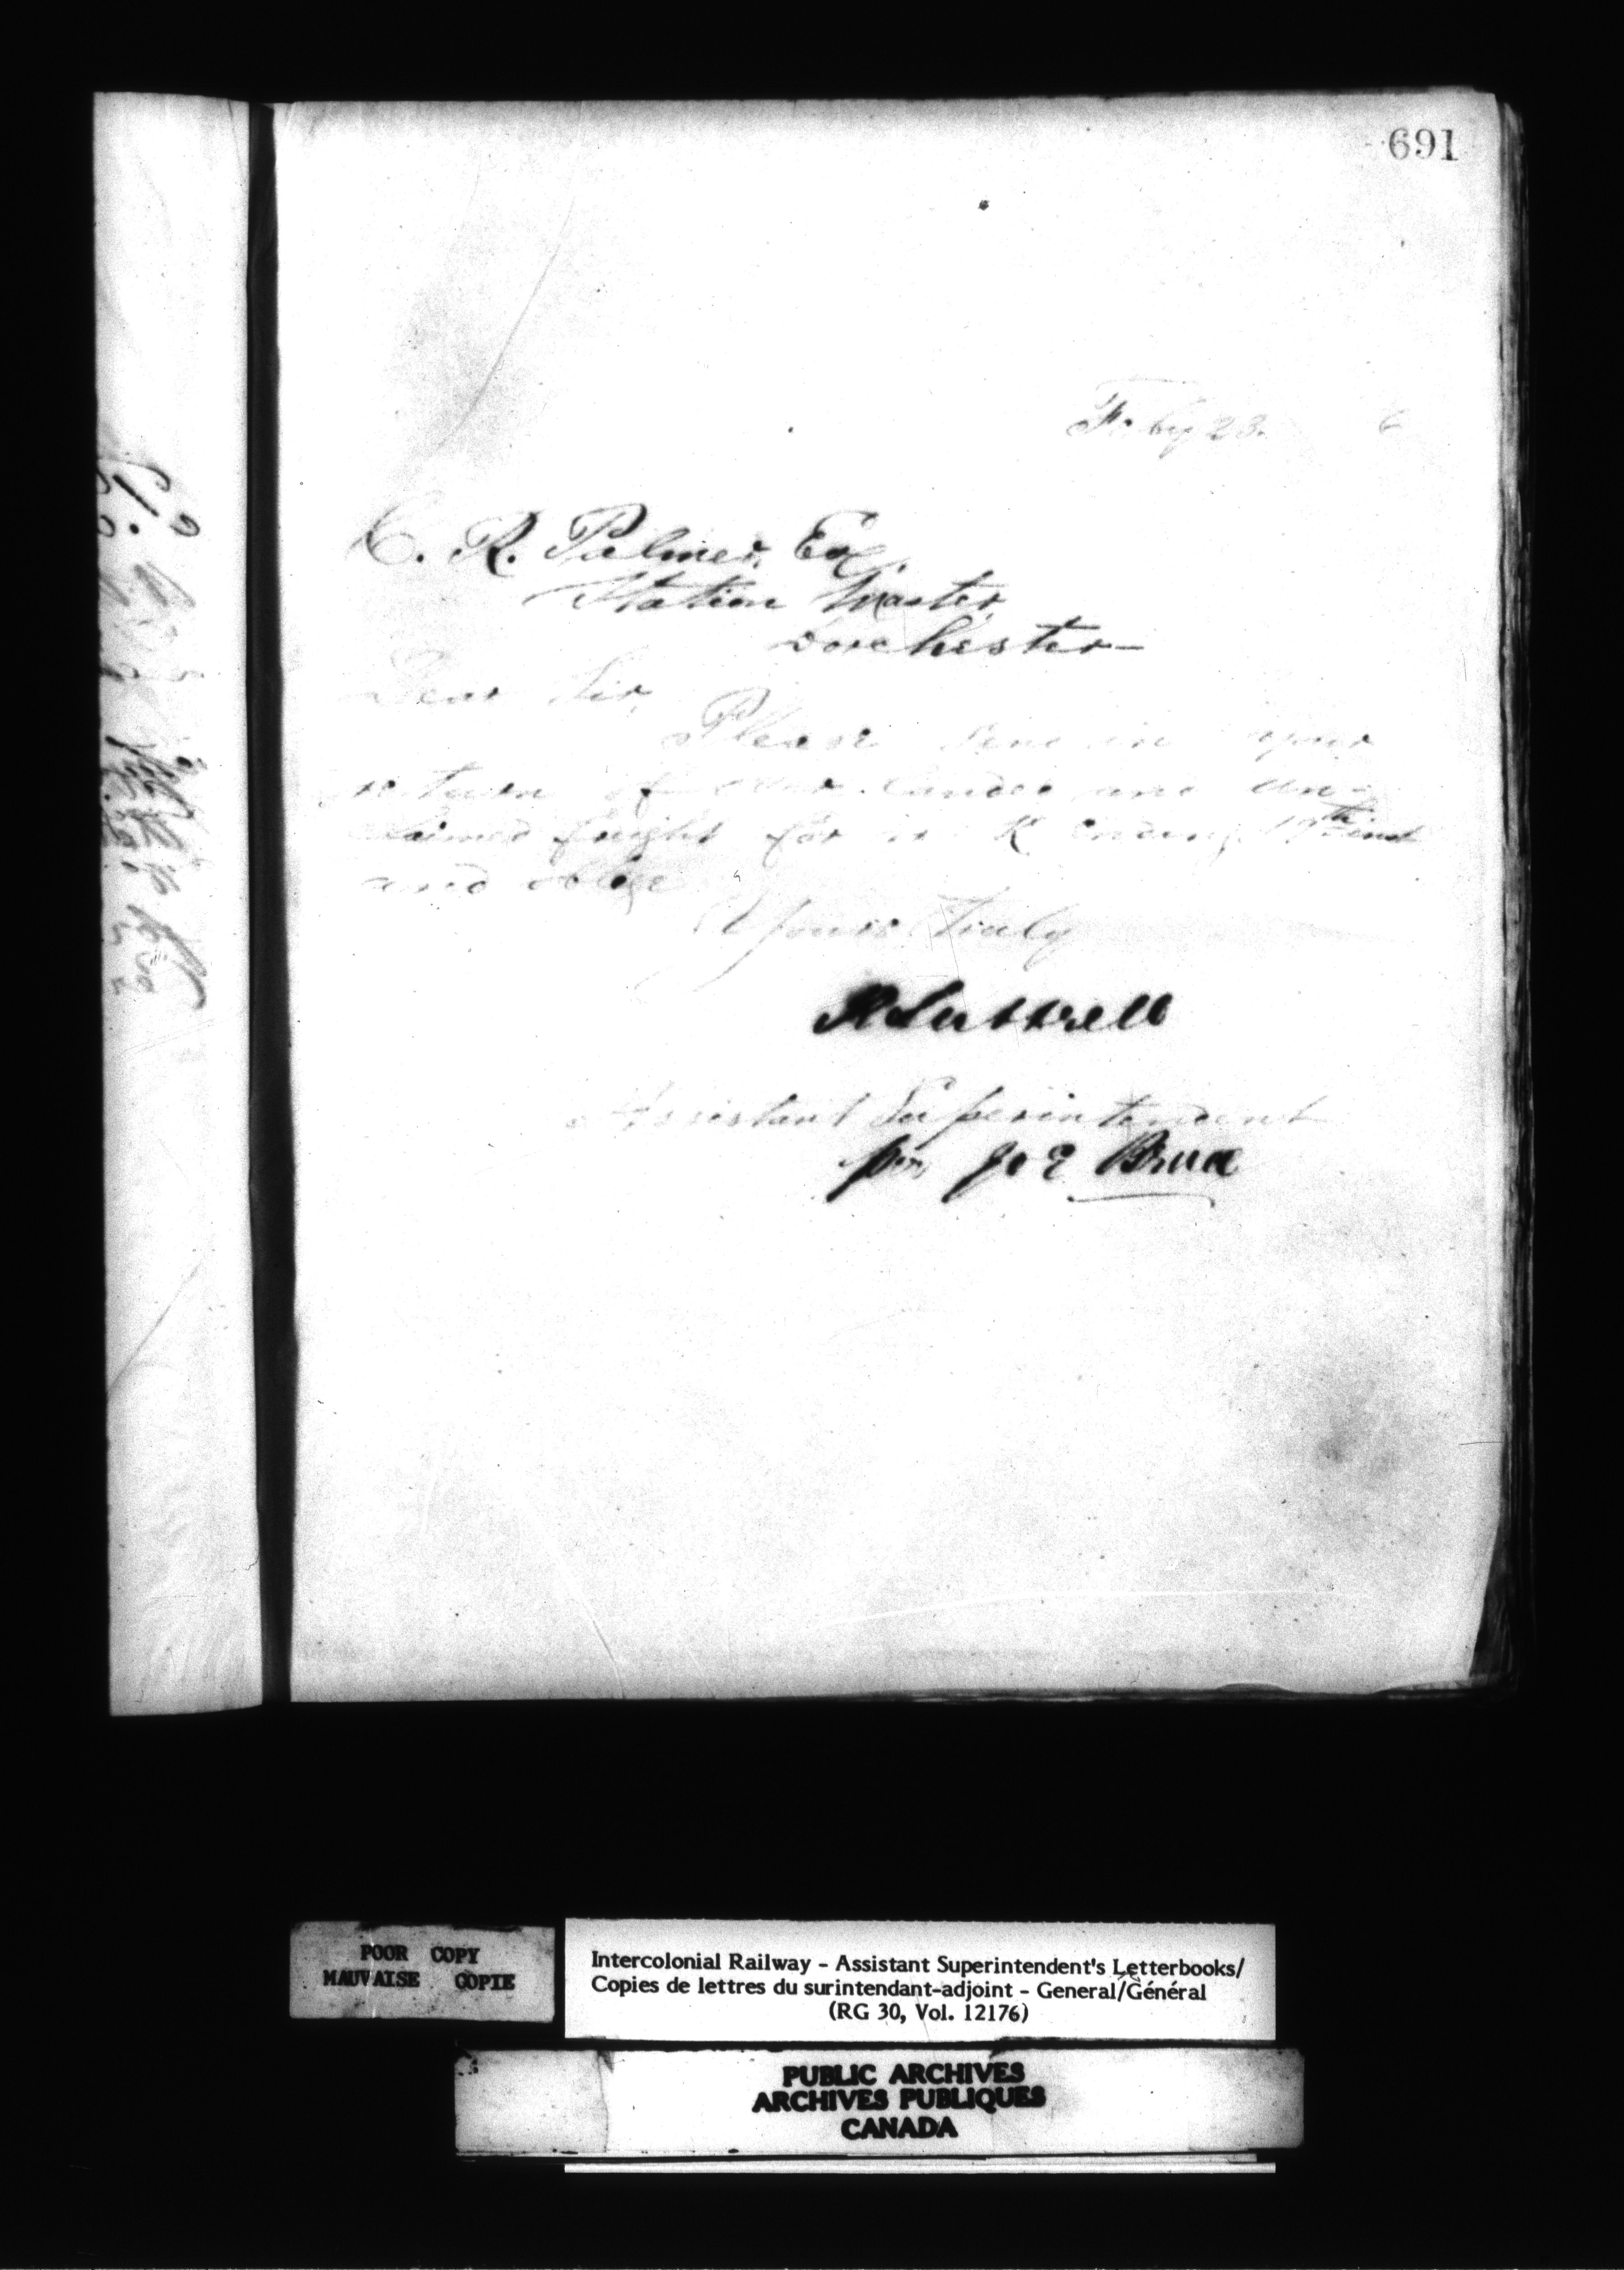 691
Feby 23. 6
C. R. Palmer, Esq.
Station Master,
Dorchester
Dear Sir,
Please send in your
return of over landed and un-
claimed freight for week ending 19th inst
and oblige
Yours Truly
Assistant Superintendent
per
POOR COPY
MAUVAISE COPIE
Intercolonial Railway - Assistant Superintendent's Letterbooks/
Copies de lettres du surintendant-adjoint - General/Général
(RG 30, Vol. 12176)
PUBLIC ARCHIVES
ARCHIVES PUBLIQUES
CANADA